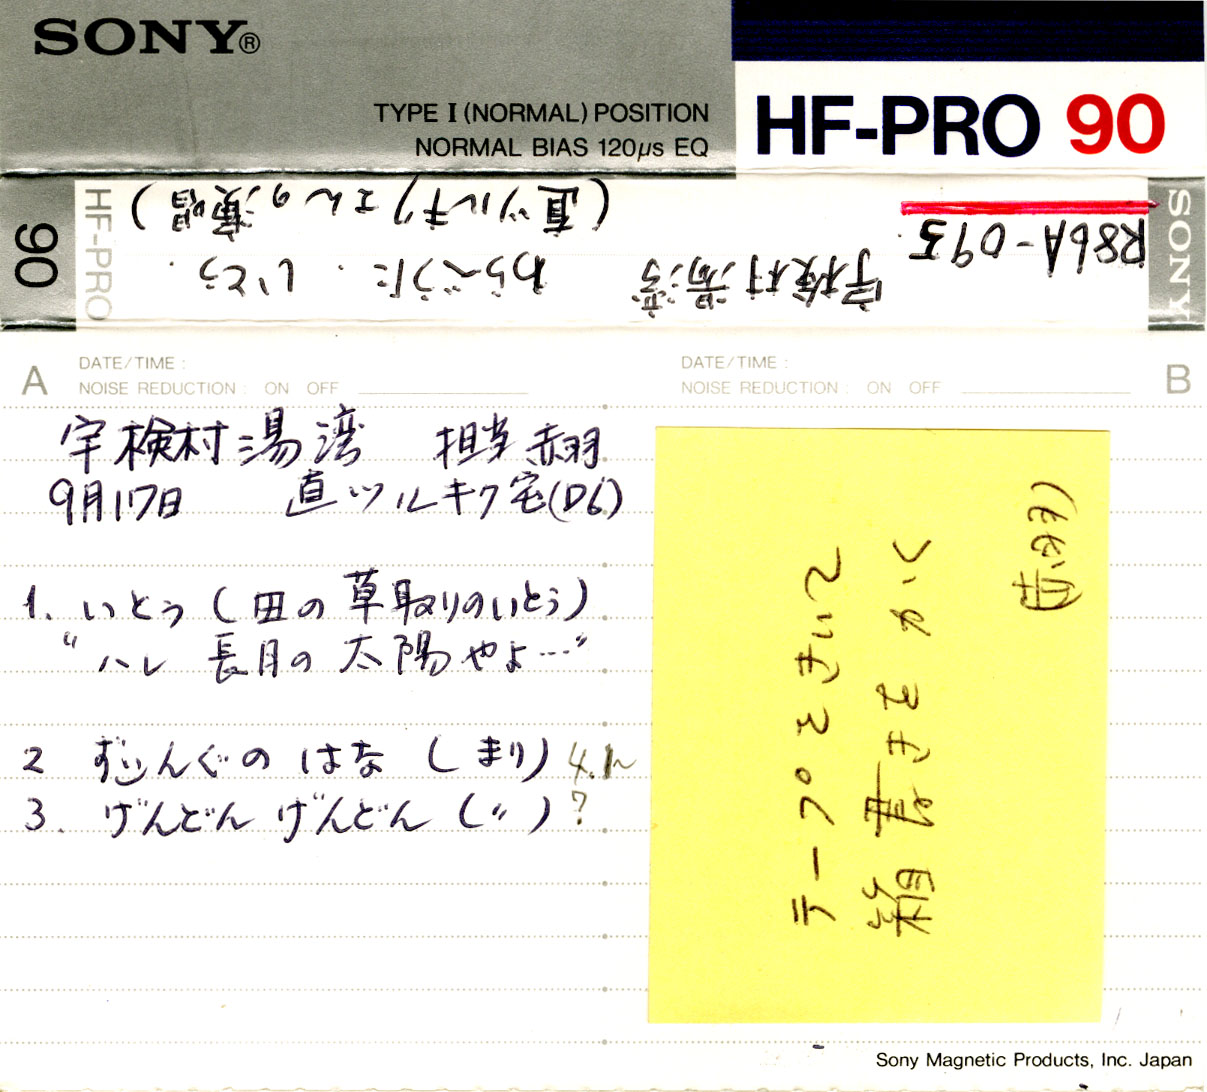 SONY®
TYPE I (NORMAL) POSITION
NORMAL BIAS 120μs EQ
HF-PRO 90
SONY
R86A-095
宇検村湯湾
わらべうた・いとう
(直ツルキクさんの演唱)
HF-PRO
90
A
DATE/TIME :
NOISE REDUCTION : ON OFF
DATE/TIME :
NOISE REDUCTION : ON OFF
B
宇検村湯湾 担当 赤羽
9月17日 直ツルキク宅(D6)
1. いとう(田の草取りのいとう)
"ハレ 長月の太陽やよ…"
2 ずいんぐのはな (まり)
3. げんどんげんどん (〃) ?
テープをきいて
箱書きをかく
Sony Magnetic Products, Inc. Japan